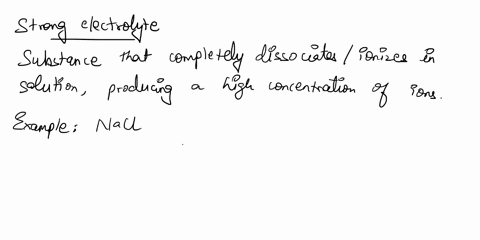 Strong electrolyte
Substance that completely dissociates/ionizes in
solution, producing a high concentration of ions.
Example: NaCl